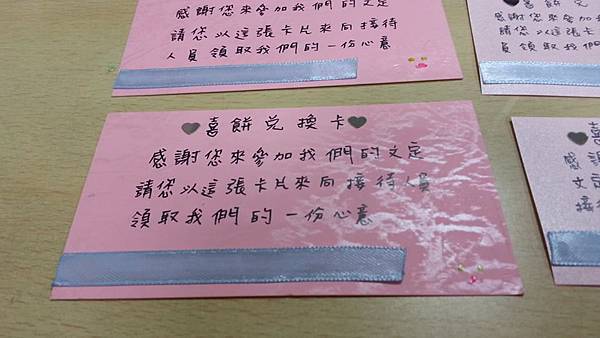 感謝您來參加我們的文定
請您以這張卡片來向接待
人員領取我們的一份心意
喜餅兌
感謝您來參加
請您以這張卡
員領取我們
♥喜餅兌換卡♥
感謝您來參加我們的文定
請您以這張卡片來向接待人員
領取我們的一份心意
喜
感謝
文定
接待